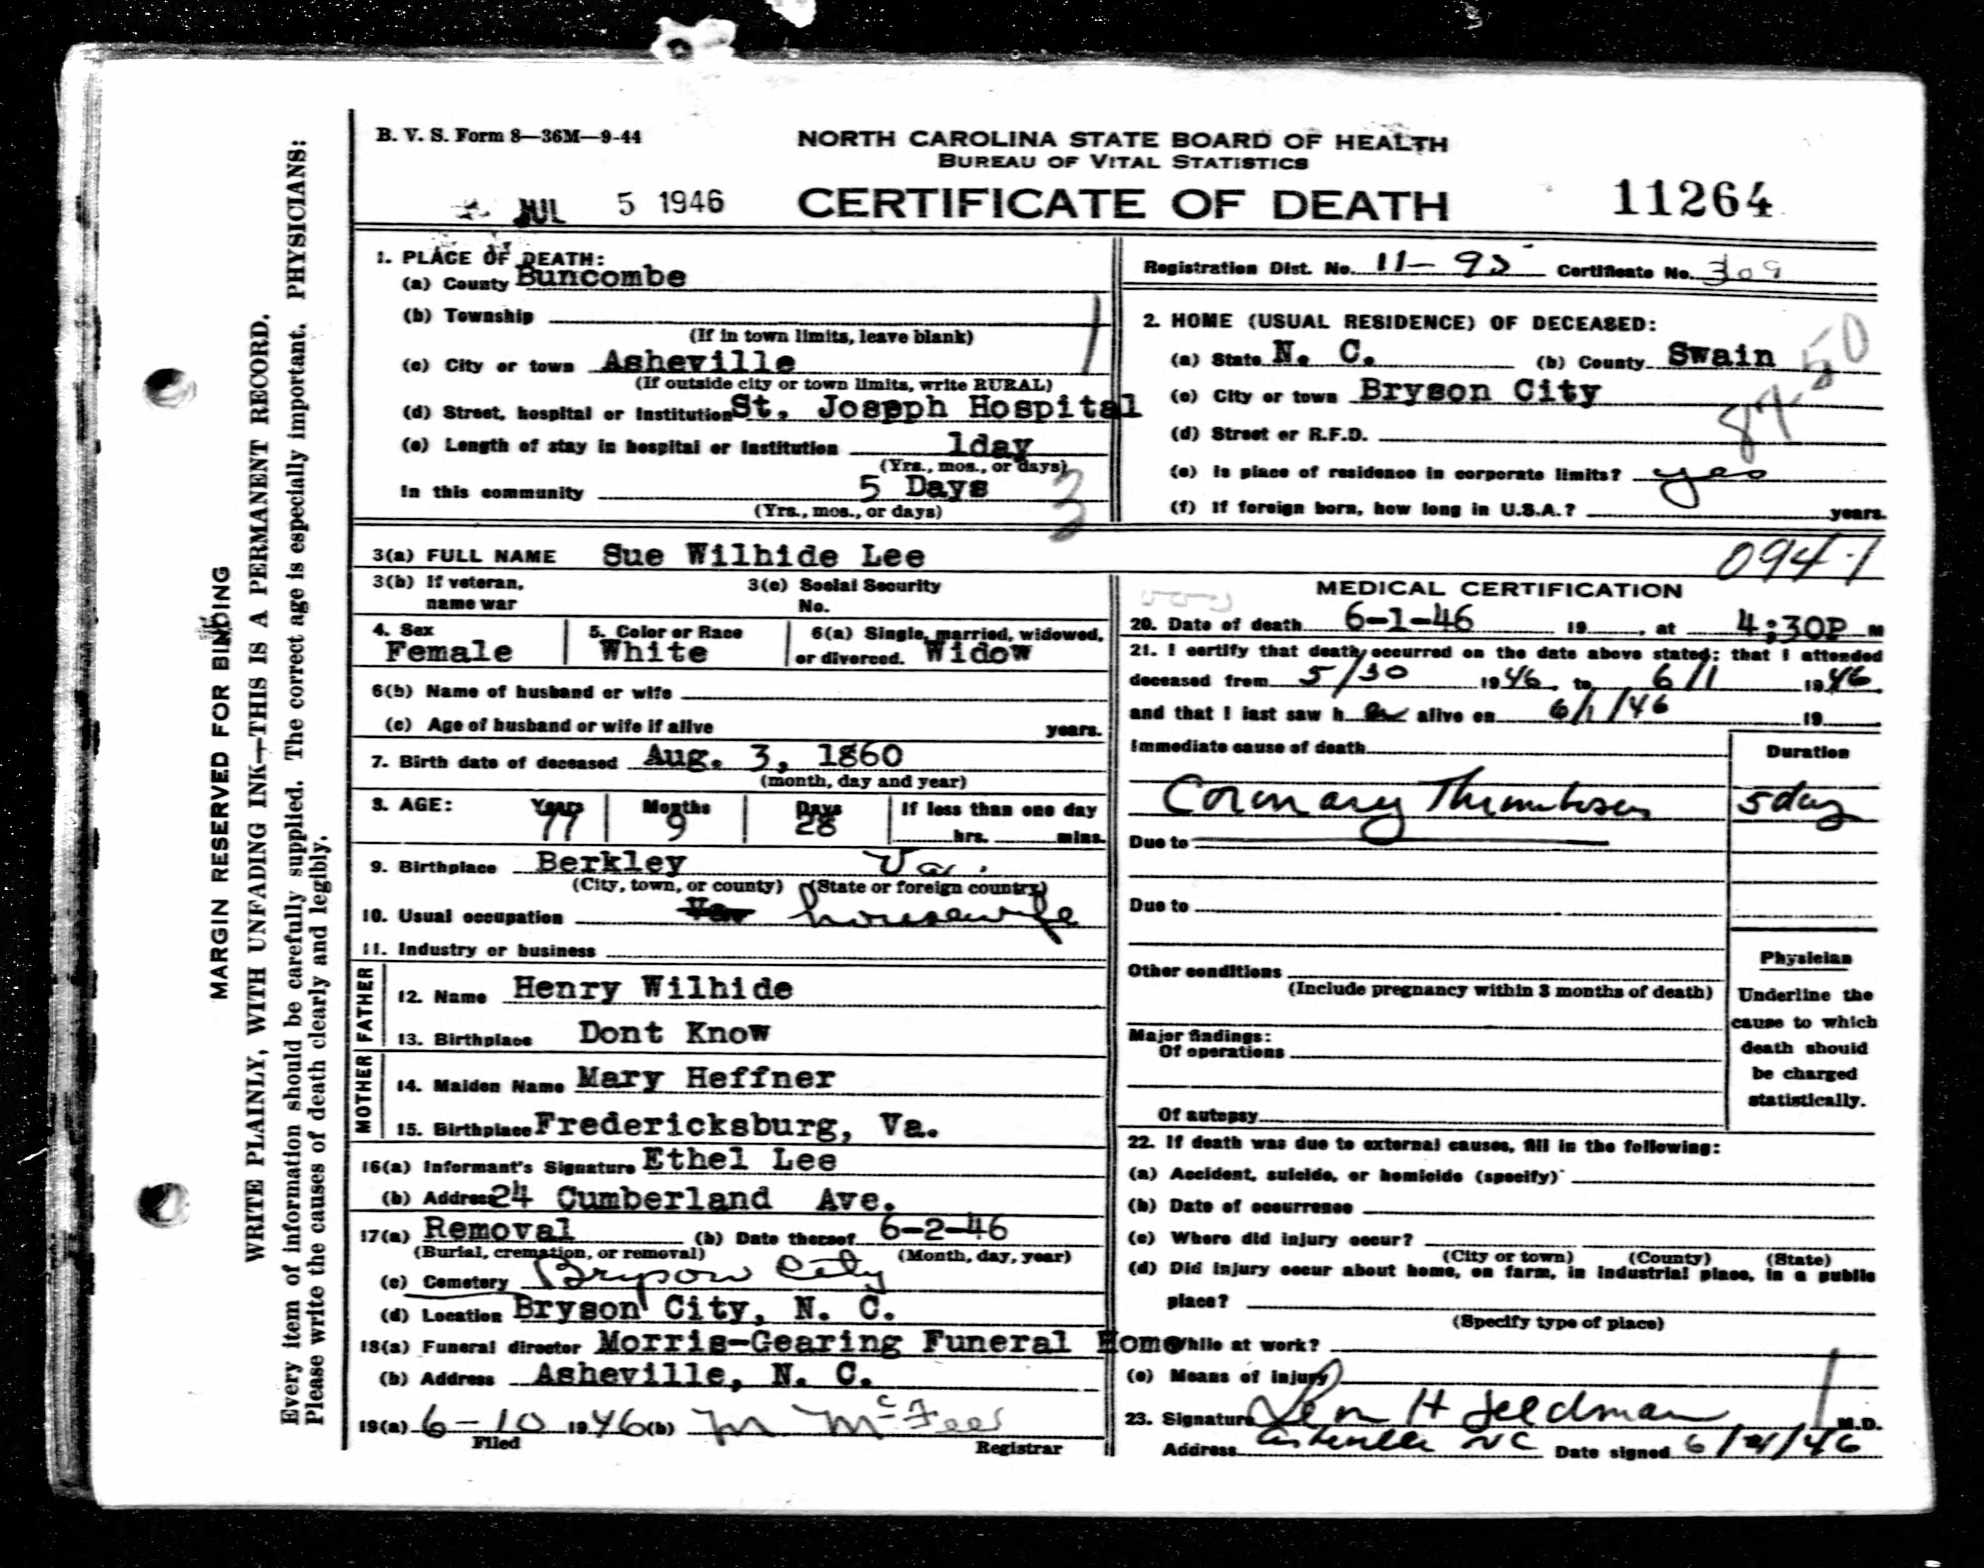 B. V. S. Form 8—36M—9-44
NORTH CAROLINA STATE BOARD OF HEALTH
BUREAU OF VITAL STATISTICS
JUL 5 1946
CERTIFICATE OF DEATH
11264
MARGIN RESERVED FOR BINDING
WRITE PLAINLY, WITH UNFADING INK—THIS IS A PERMANENT RECORD.
Every item of information should be carefully supplied. The correct age is especially important. PHYSICIANS:
Please write the causes of death clearly and legibly.
1. PLACE OF DEATH:
(a) County Buncombe
(b) Township
(If in town limits, leave blank)
(c) City or town Asheville
(If outside city or town limits, write RURAL)
(d) Street, hospital or institution St. Joseph Hospital
(e) Length of stay in hospital or institution 1day
(Yrs., mos., or days)
In this community 5 Days
(Yrs., mos., or days)
3
Registration Dist. No. 11-95 Certificate No. 309
2. HOME (USUAL RESIDENCE) OF DECEASED:
(a) State N. C. (b) County Swain
50
(c) City or town Bryson City
84
(d) Street or R.F.D.
(e) Is place of residence in corporate limits? yes
(f) If foreign born, how long in U.S.A.? years.
3(a) FULL NAME Sue Wilhide Lee
094-1
3(b) If veteran, name war
3(c) Social Security No.
4. Sex Female
5. Color or Race White
6(a) Single, married, widowed, or divorced. Widow
6(b) Name of husband or wife
(c) Age of husband or wife if alive years.
7. Birth date of deceased Aug. 3, 1860
(month, day and year)
8. AGE: Years 77 Months 9 Days 28 If less than one day
hrs. mins.
9. Birthplace Berkley Va.
(City, town, or county) (State or foreign country)
10. Usual occupation housewife
11. Industry or business
FATHER
12. Name Henry Wilhide
13. Birthplace Dont Know
MOTHER
14. Maiden Name Mary Heffner
15. Birthplace Fredericksburg, Va.
16(a) Informant's Signature Ethel Lee
(b) Address 24 Cumberland Ave.
17(a) Removal (b) Date thereof 6-2-46
(Burial, cremation, or removal) (Month, day, year)
(c) Cemetery Bryson City
(d) Location Bryson City, N. C.
18(a) Funeral director Morris-Gearing Funeral Home
(b) Address Asheville, N. C.
19(a) 6-10 1946 (b) M McFee
Filed Registrar
MEDICAL CERTIFICATION
20. Date of death 6-1-46 19 , at 4:30P M
21. I certify that death occurred on the date above stated; that I attended
deceased from 5/30 1946, to 6/1 1946
and that I last saw her alive on 6/1/46 19
Immediate cause of death
Duration
Coronary Thrombosis 5 day
Due to
Due to
Other conditions
(Include pregnancy within 3 months of death)
Major findings:
Of operations
Of autopsy
Physician
Underline the
cause to which
death should
be charged
statistically.
22. If death was due to external causes, fill in the following:
(a) Accident, suicide, or homicide (specify)
(b) Date of occurrence
(c) Where did injury occur?
(City or town) (County) (State)
(d) Did injury occur about home, on farm, in industrial place, in a public
place?
(Specify type of place)
While at work?
(e) Means of injury
23. Signature Leon H Feldman M.D.
Address Asheville NC Date signed